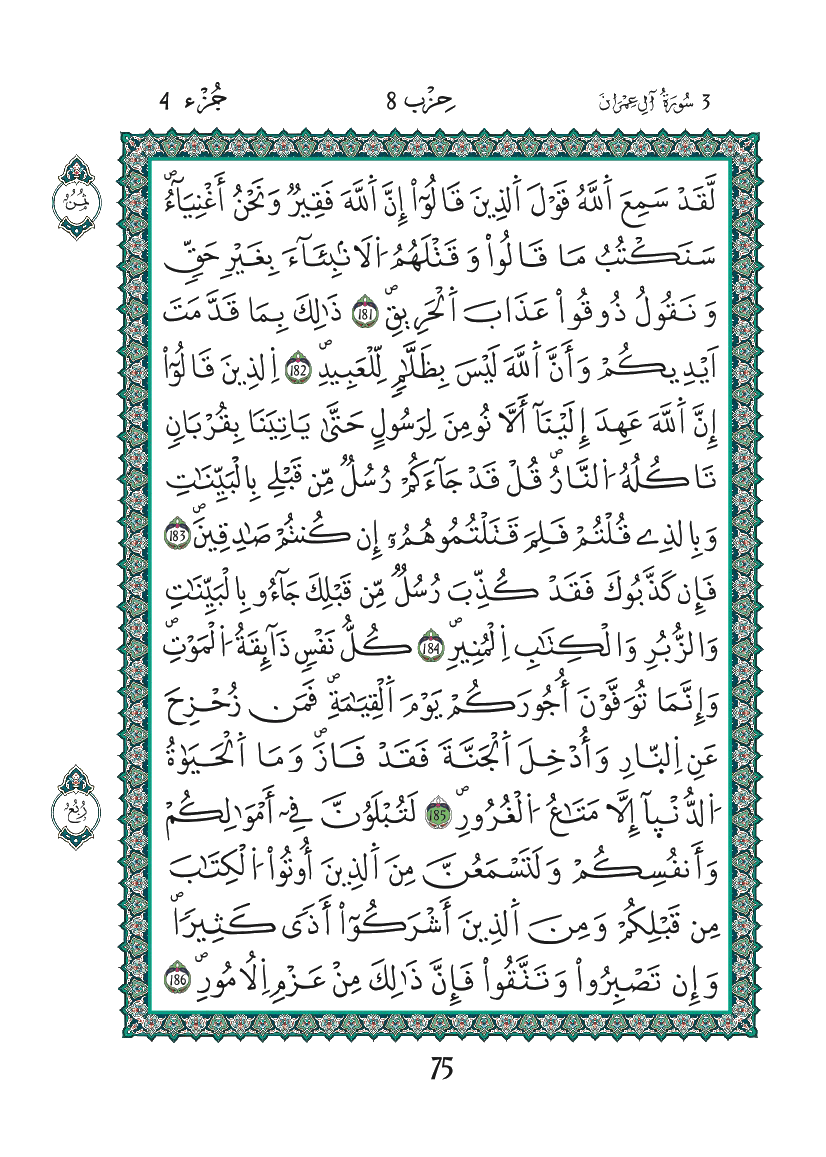 3 سُورَةُ آلِ عِمْرَانَ
حِزْب 8
جُزْء 4
ثُمُن
لَّقَدْ سَمِعَ اَ۬للَّهُ قَوْلَ اَ۬لذِينَ قَالُوٓاْ إِنَّ اَ۬للَّهَ فَقِيرٞ وَنَحْنُ أَغْنِيَآءُۖ
سَنَكْتُبُ مَا قَالُواْ وَقَتْلَهُمُ اُ۬لَانۢبِئَآءَ بِغَيْرِ حَقّٖ
وَنَقُولُ ذُوقُواْ عَذَابَ اَ۬لْحَرِيقِۖ 181 ذَٰلِكَ بِمَا قَدَّمَتَ
اَيْدِيكُمْ وَأَنَّ اَ۬للَّهَ لَيْسَ بِظَلَّٰمٖ لِّلْعَبِيدِۖ 182 اِ۬لذِينَ قَالُوٓاْ
إِنَّ اَ۬للَّهَ عَهِدَ إِلَيْنَآ أَلَّا نُومِنَ لِرَسُولٍ حَتَّىٰ يَاتِيَنَا بِقُرْبَانٖ
تَاكُلُهُ اُ۬لنَّارُۖ قُلْ قَدْ جَآءَكُمْ رُسُلٞ مِّن قَبْلِے بِالْبَيِّنَٰتِ
وَبِالذِے قُلْتُمْ فَلِمَ قَتَلْتُمُوهُمُۥٓ إِن كُنتُمْ صَٰدِقِينَۖ 183
فَإِن كَذَّبُوكَ فَقَدْ كُذِّبَ رُسُلٞ مِّن قَبْلِكَ جَآءُو بِالْبَيِّنَٰتِ
وَالزُّبُرِ وَالْكِتَٰبِ اِ۬لْمُنِيرِۖ 184 كُلُّ نَفْسٖ ذَآئِقَةُ اُ۬لْمَوْتِۖ
وَإِنَّمَا تُوَفَّوْنَ أُجُورَكُمْ يَوْمَ اَ۬لْقِيَٰمَةِۖ فَمَن زُحْزِحَ
عَنِ اِ۬لنّ۪ارِ وَأُدْخِلَ اَ۬لْجَنَّةَ فَقَدْ فَازَۖ وَمَا اَ۬لْحَيَوٰةُ
اُ۬لدُّنْي۪آ إِلَّا مَتَٰعُ اُ۬لْغُرُورِۖ 185 لَتُبْلَوُنَّ فِےٓ أَمْوَٰلِكُمْ
رُبُع
وَأَنفُسِكُمْ وَلَتَسْمَعُنَّ مِنَ اَ۬لذِينَ أُوتُواْ اُ۬لْكِتَٰبَ
مِن قَبْلِكُمْ وَمِنَ اَ۬لذِينَ أَشْرَكُوٓاْ أَذىٗ كَثِيراٗۖ
وَإِن تَصْبِرُواْ وَتَتَّقُواْ فَإِنَّ ذَٰلِكَ مِنْ عَزْمِ اِ۬لُامُورِۖ 186
75